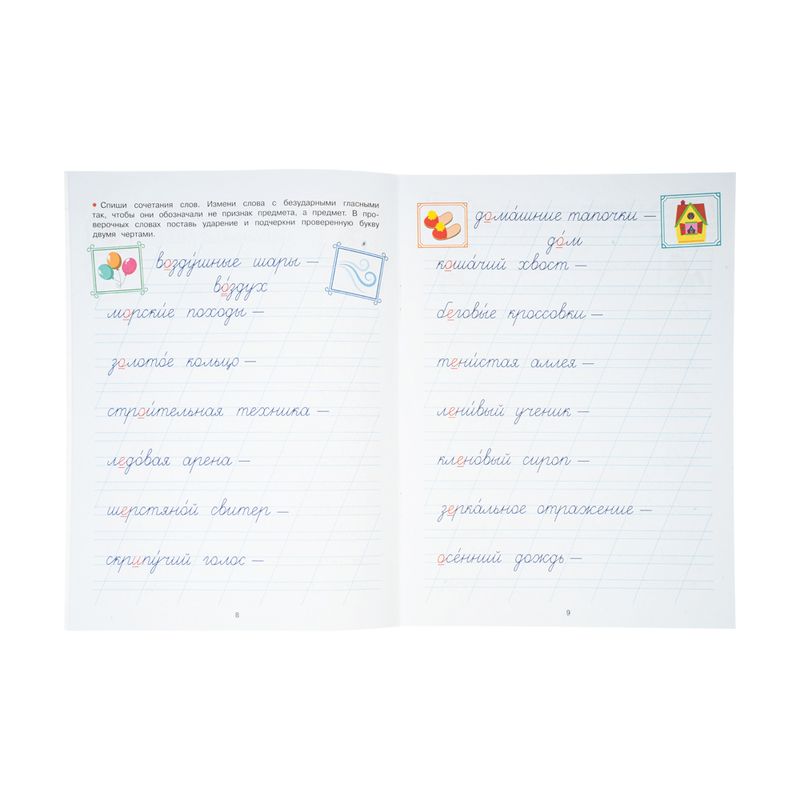 • Спиши сочетания слов. Измени слова с безударными гласными
так, чтобы они обозначали не признак предмета, а предмет. В про-
верочных словах поставь ударение и подчеркни проверенную букву
двумя чертами.
возду́шные шары —
во́здух
морски́е походы —
золото́е кольцо —
строи́тельная техника —
ледо́вая арена —
шерстяно́й свитер —
скрипу́чий голос —
8
дома́шние тапочки —
до́м
коша́чий хвост —
беговы́е кроссовки —
тени́стая аллея —
лени́вый ученик —
клено́вый сироп —
зерка́льное отражение —
осе́нний дождь —
9